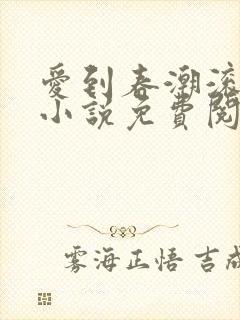 愛到春潮滾
小說免費閱
雾海正悟 吉成